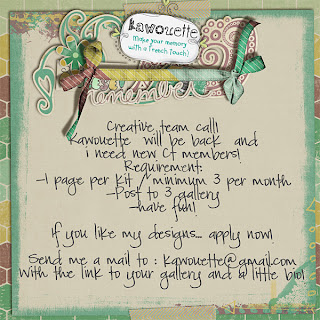 kawouette
(Make your memory
with a french touch)
remember
Creative team call!
Kawouette will be back and
i need new CT members!
Requirement:
-1 page per kit / minimum 3 per month
-Post to 3 gallery
-have fun!
if you like my designs... apply now!
Send me a mail to : kawouette@gmail.com
With the link to your gallery and a little bio!